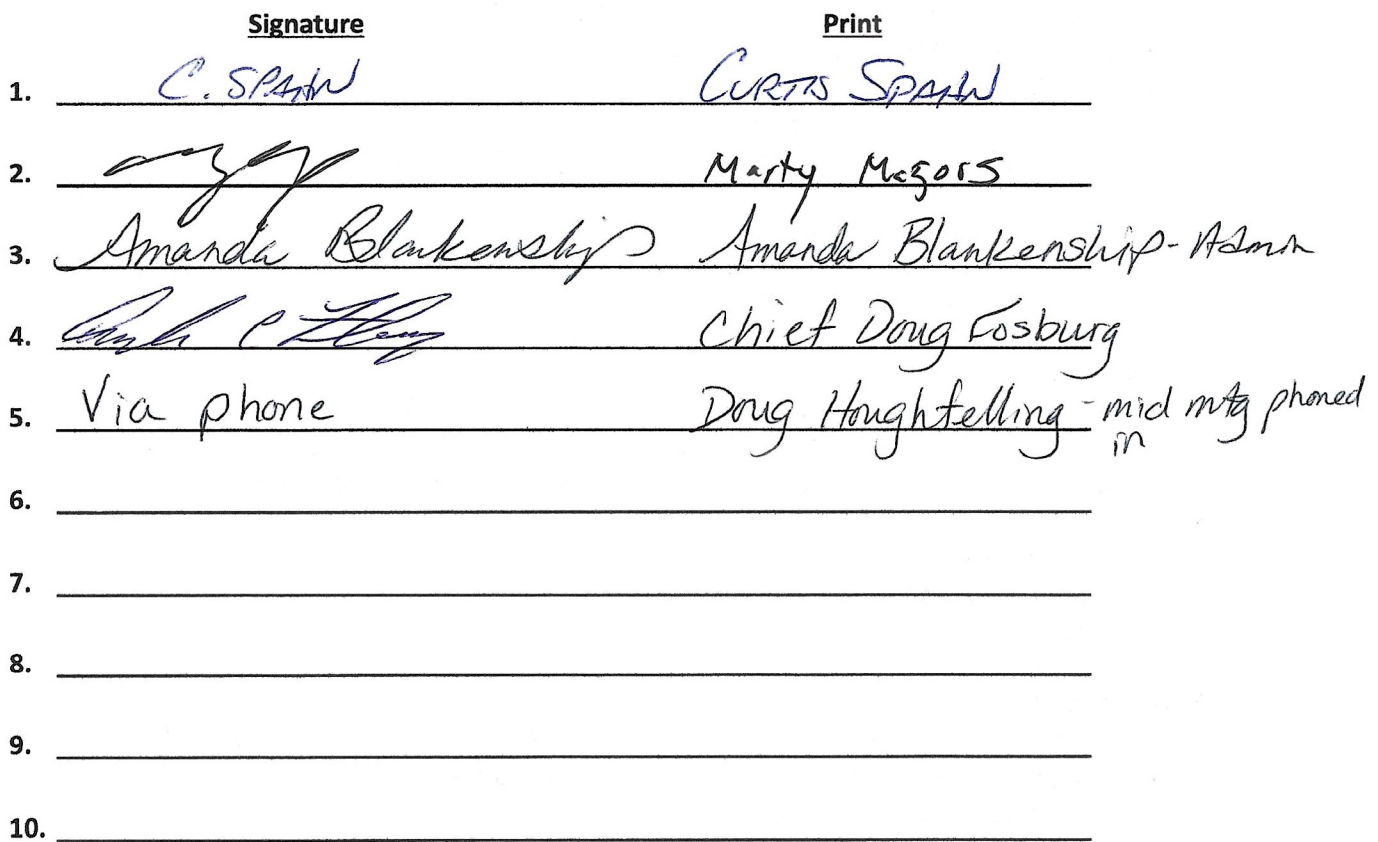 Signature Print
1. C. SPAHN CURTIS SPAHN
2. Marty
3. Amanda Blankenship Amanda Blankenship - Admin
4. Chief Doug Fosburg
5. Via phone Doug Houghtelling - mid mtg phoned
in
6.
7.
8.
9.
10.